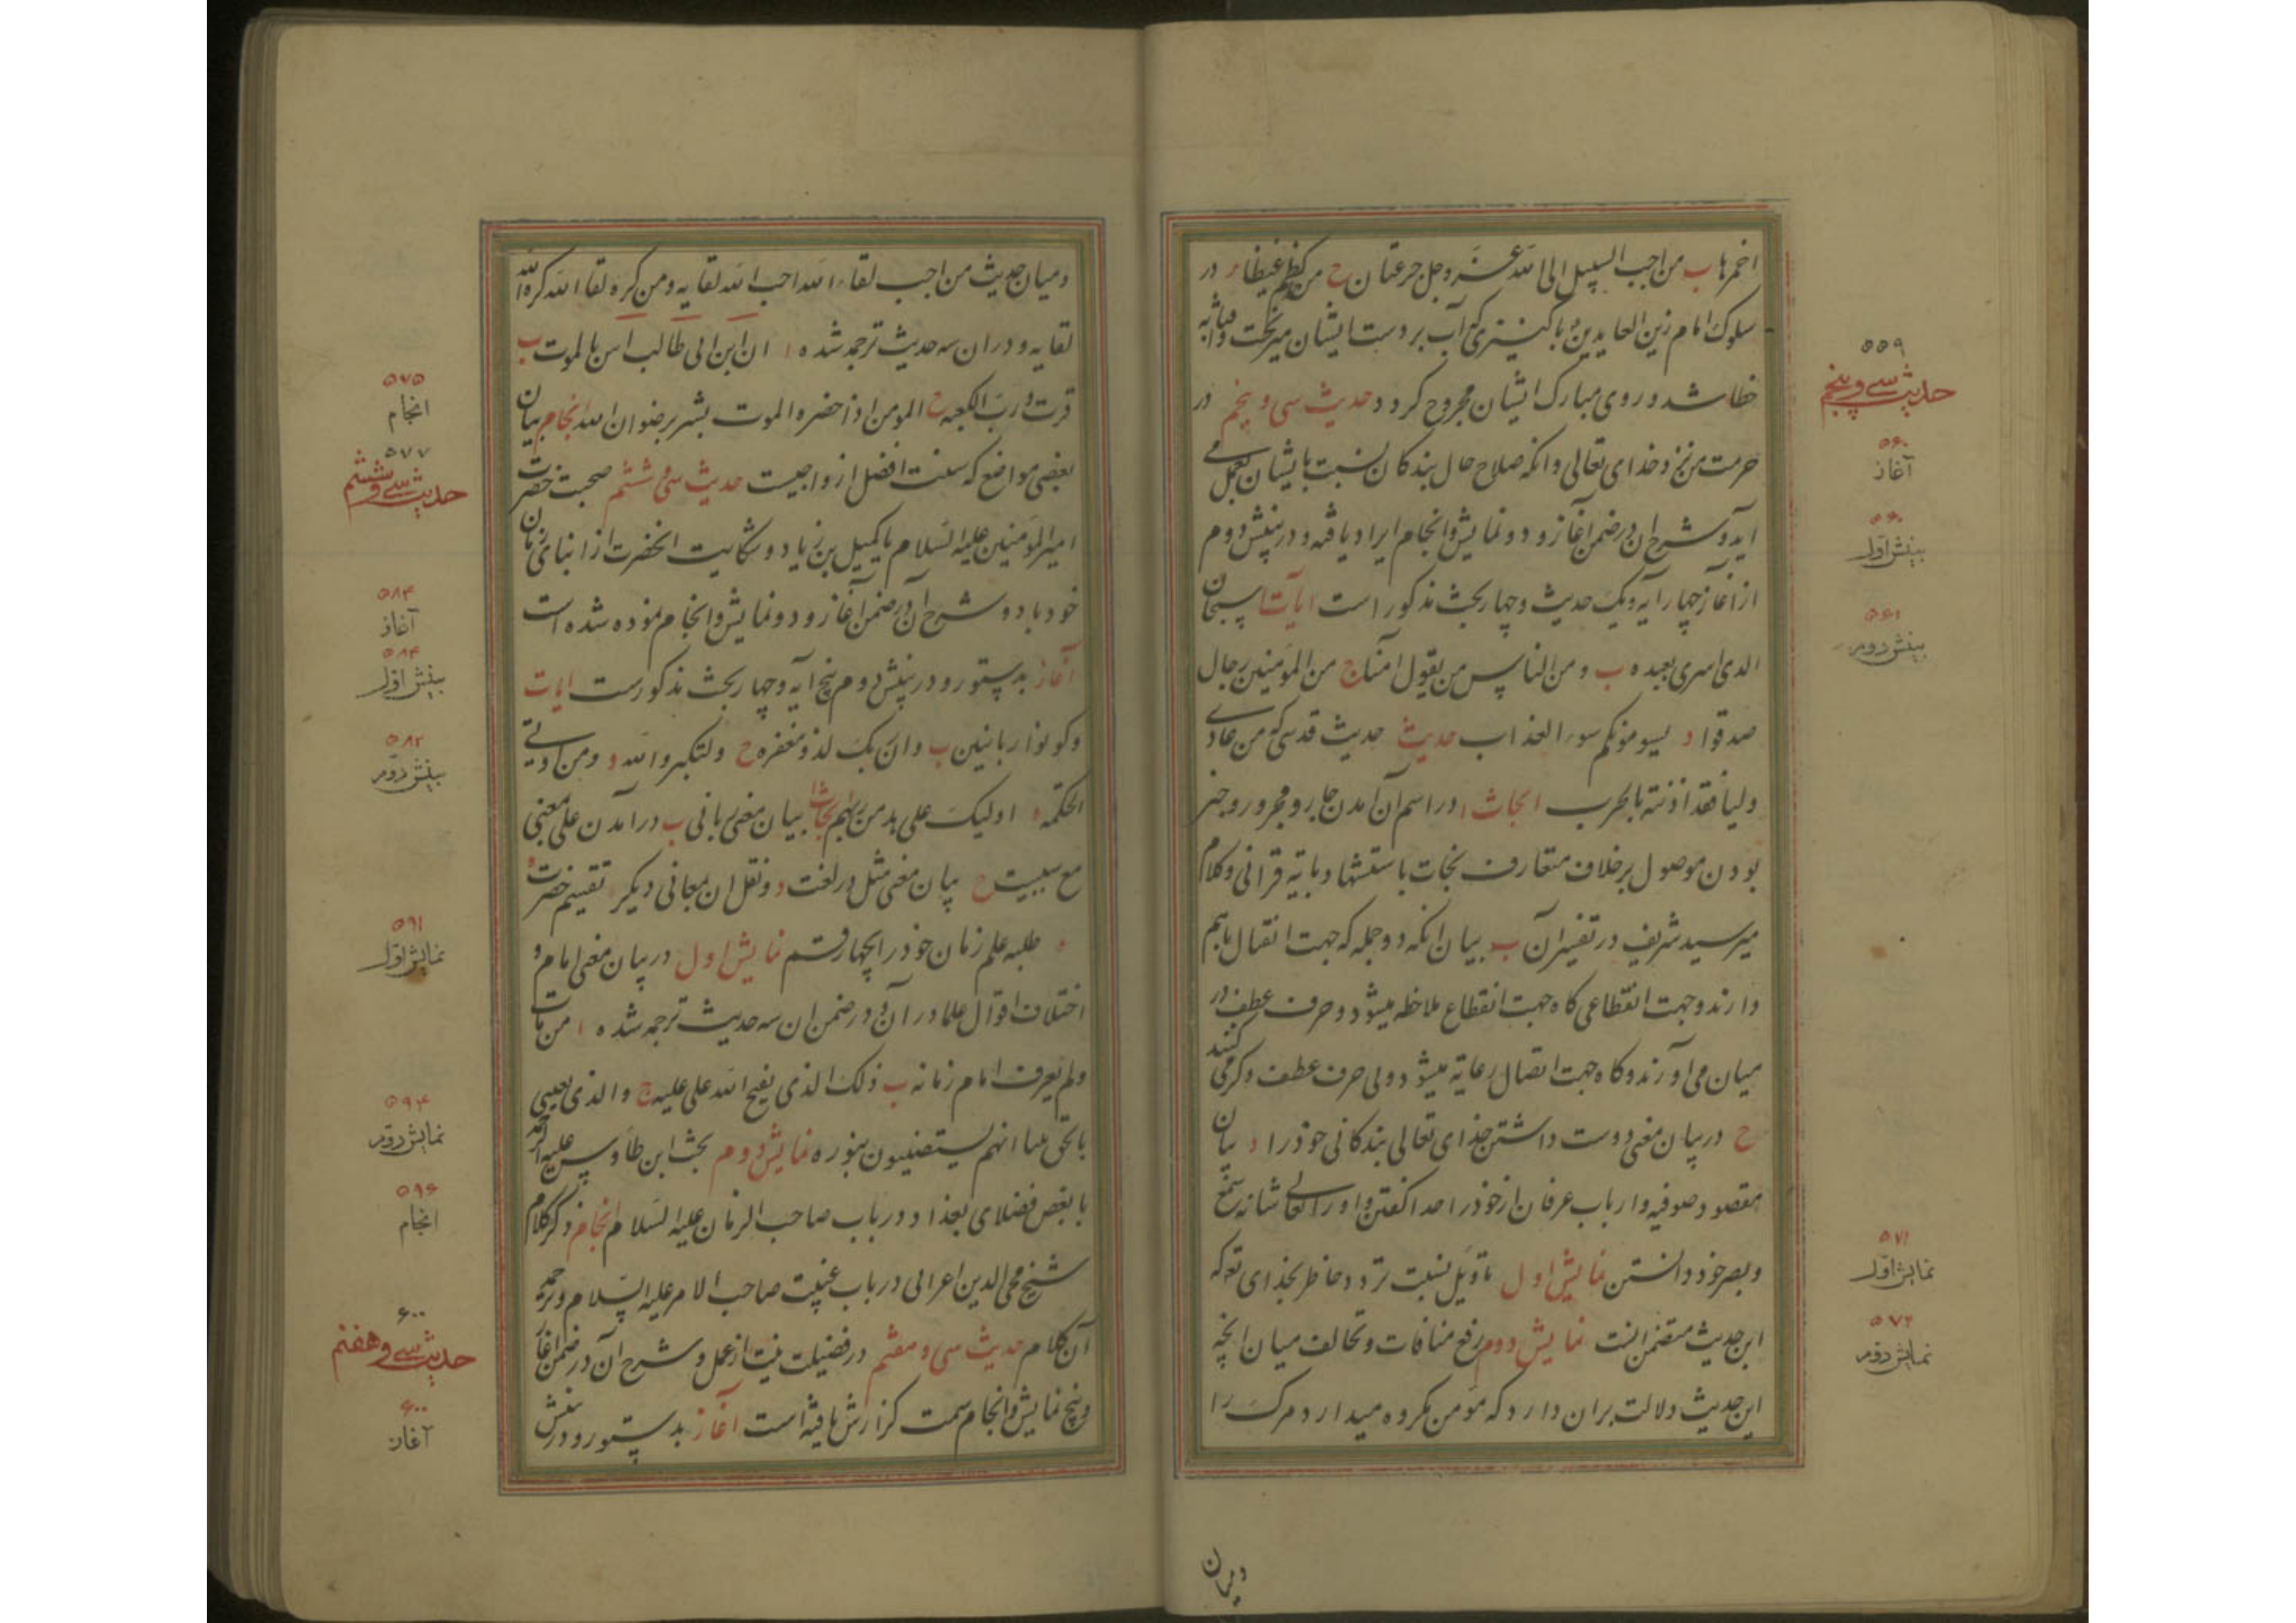 اخمرها ب من احب السبیل الی الله عز وجل جرعتان ح من کظم غیظا ء در
سلوک امام زین العابدین با کنیزی که آب بر دست ایشان میریخت و
خطا شد و روی مبارک ایشان مجروح کرد د حدیث سی و پنجم در
حرمت مومن نزد خدای تعالی و انکه صلاح حال بندکان نسبت بایشان بعمل می
آید و شرح آن در ضمن آغاز و دو نمایش و انجام ایراد یافته و در بینش دوم
از آغاز چهار آیه و یک حدیث و چهار بحث مذکور است ایات ا سبحان
الذی اسری بعبده ب و من الناس من یقول امنا ج من المؤمنین رجال
صدقوا د یسومونکم سوء العذاب حدیث حدیث قدسی که من عادی
ولیا فقد اذنته بالحرب ابحاث ا در اسم ان آمدن جار و مجرور و خبر
بودن موصول بر خلاف متعارف نحات با ستشهاد بایه قرانی و کلام
میر سید شریف در تفسیر آن ب بیان انکه دو جمله که جهت اتصال باهم
دارند و جهت انقطاعی کاه جهت انقطاع ملاحظه میشود و حرف عطف در
میان می اورند و کاه جهت اتصال رعایة میشود و بی حرف عطف ذکر می کنند
ح در بیان معنی دوست داشتن خدای تعالی بندکانی خود را د بیان
مقصود صوفیه و ارباب عرفان از خود را خدا کفتن و او را تعالی شانه سمع
و بصر خود دانستن نمایش اول تاویل نسبت تردد خاطر بخدای تع که
این حدیث متضمن انست نمایش دوم رفع منافات و تخالف میان انچه
این حدیث دلالت بران دارد که مومن مکروه میدارد مرک را
ومیان
۵۵۹
حدیث سی و پنجم
۵۶۰
آغاز
۵۶۰
بینش اول
۵۶۱
بینش دوم
۵۷۱
نمایش اول
۵۷۲
نمایش دوم
و میان حدیث من احب لقاء الله احب الله لقایه و من کره لقا الله کره الله
لقایه و دران سه حدیث ترجمه شده ا ان ابن ابی طالب انس بالموت ب
فزت و رب الکعبه ح المومن اذا حضره الموت بشر برضوان الله انجام بیان
بعضی مواضع که سنت افضل از واجبست حدیث سی و ششم صحبت حضرت
امیر المؤمنین علیه السلام با کمیل بن زیاد و شکایت انحضرت از ابنای زمان
خود باد و شرح آن در ضمن آغاز و دو نمایش و انجام نموده شده است
آغاز بدستور و در بینش دوم پنج ایه و چهار بحث مذکورست ایات
و کونوا ربانیین ب وان ربک لذو مغفره ح ولتکبروا الله د ومن اوتی
الحکمه ه اولیک علی هدی من ربهم ابحاث بیان معنی ربانی ب در امدن علی بمعنی
مع سببیت ح بیان معنی مثل در لغت و نقل ان بمعانی دیکر د تقسیم حضرت
طلبه علم زمان خود را بچهار قسم نمایش اول در بیان معنی امام و
اختلاف اقوال علما در آن و در ضمن ان سه حدیث ترجمه شده ا من مات
ولم یعرف امام زمانه ب ذلک الذی یفتح الله علی علیه ج والذی بعثنی
بالحق نبیا انهم لیستضیئون بنوره نمایش دوم بحث ابن طاوس علیه الرحمه
با بعض فضلای بغداد در باب صاحب الزمان علیه السلام انجام ذکر کلام
شیخ محی الدین اعرابی در باب غیبت صاحب الامر علیه السلام و ترجمه
آن کلام حدیث سی و هفتم در فضیلت نیت از عمل و شرح آن در ضمن آغاز
و پنج نمایش و انجام سمت کزارش یافته است آغاز بدستور و در بینش
۵۷۵
انجام
۵۷۷
حدیث سی و ششم
۵۸۳
آغاز
۵۸۴
بینش اول
۵۸۲
بینش دوم
۵۹۱
نمایش اول
۵۹۴
نمایش دوم
۵۹۶
انجام
۶۰۰
حدیث سی و هفتم
۶۰۰
آغاز